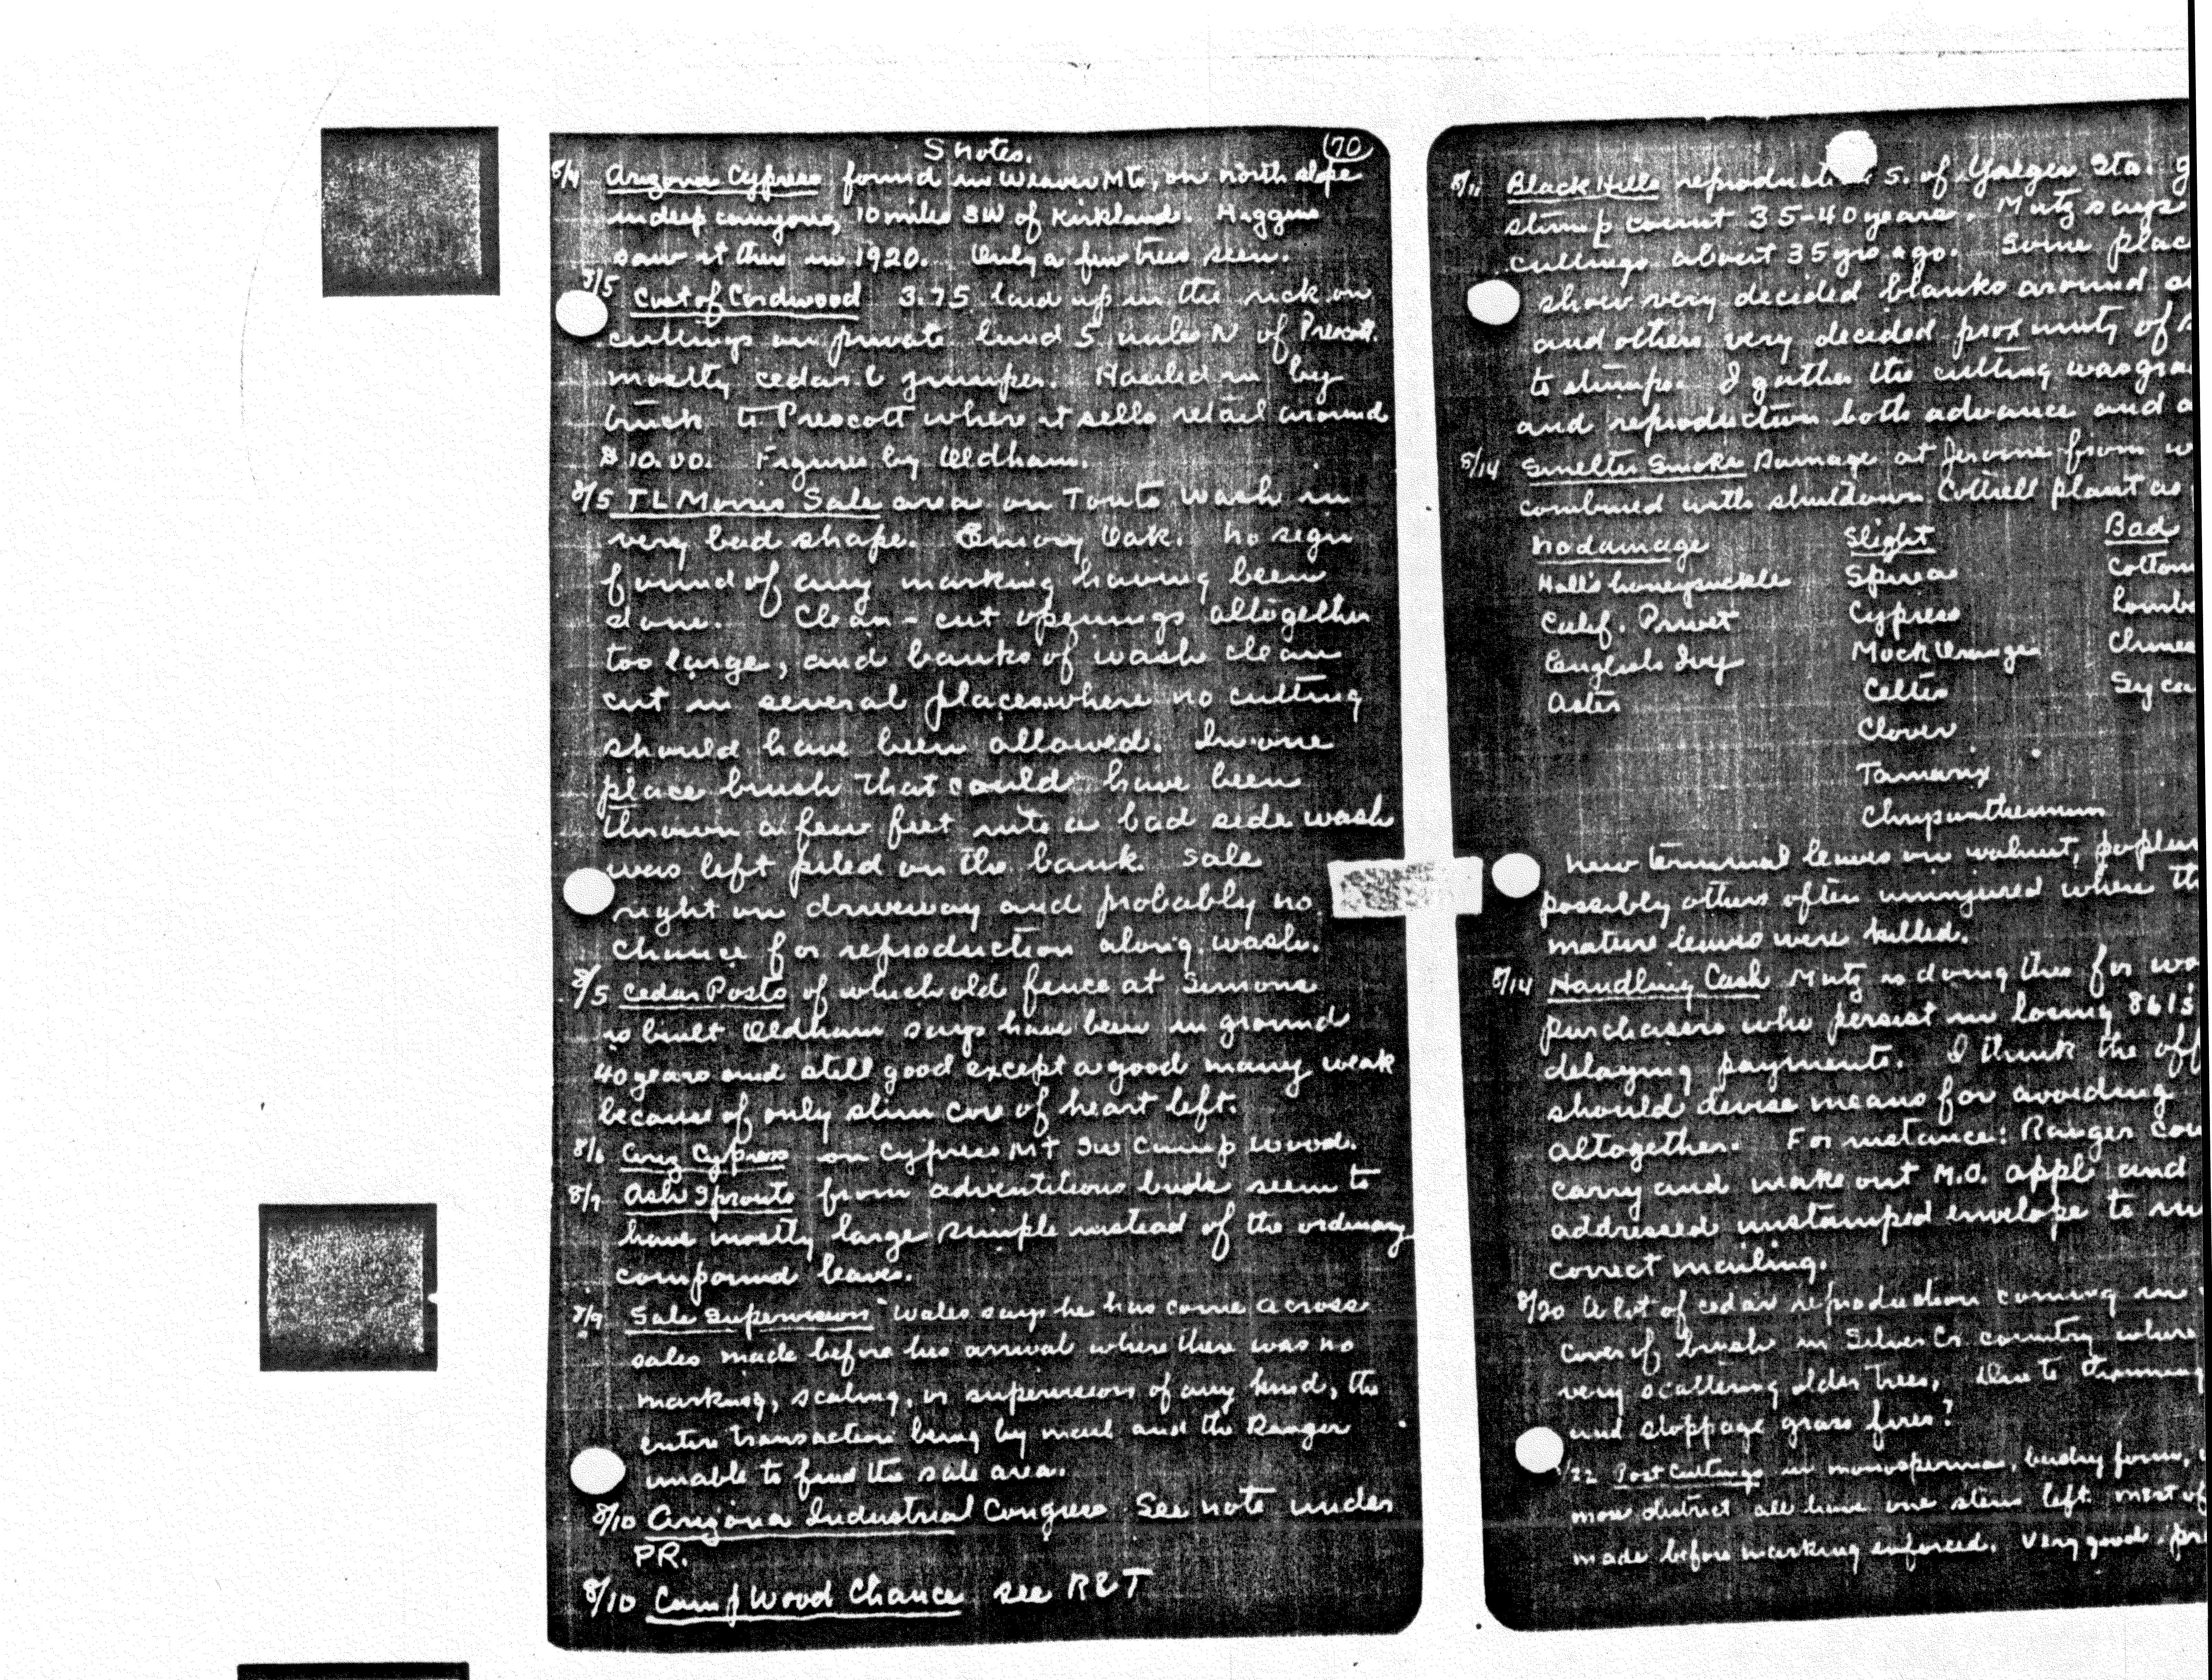 S notes.
(70)
8/4 Arizona Cypress found in Weaver Mts, on north slope
in deep canyons, 10 miles SW of Kirkland. Higgins
saw it there in 1920. Only a few trees seen.
8/5 Cost of Cordwood 3.75 laid up in the rick on
cuttings on private land 5 miles N of Prescott.
mostly cedar & juniper. Hauled in by
truck to Prescott where it sells retail around
$10.00. Figures by Oldham.
8/5 TL Morris Sale area on Touts Wash in
very bad shape. Emory Oak. No sign
found of any marking having been
done. Clean-cut openings altogether
too large, and banks of wash clean
cut in several places where no cutting
should have been allowed. In one
place brush that could have been
thrown a few feet into a bad side wash
was left piled on the bank. Sale
right on driveway and probably no
chance for reproduction along wash.
8/5 Cedar Posts of which old fence at Simons
is built Oldham says have been in ground
40 years and still good except a good many weak
because of only slim core of heart left.
8/6 Ariz Cypress on Cypress Mt SW Camp Wood.
8/7 Ash Sprouts from adventitious buds seem to
have mostly large simple instead of the ordinary
compound leaves.
8/9 Sale Supervision Wales says he has come across
sales made before his arrival where there was no
marking, scaling, or supervision of any kind, the
entire transaction being by mail and the Ranger
unable to find the sale area.
8/10 Arizona Industrial Congress See note under
PR.
8/10 Camp Wood Chance see R&T
8/11 Black Hills reproduction S. of Yaeger Sta.
stump count 35-40 years. Mutz says
cuttings about 35 yrs ago. Some plac
show very decided blanks around
and others very decided proximity of
to stumps. I gather the cutting was gra
and reproduction both advance and a
8/14 Smelter Smoke Damage at Jerome from w
combined with shutdown Cottrell plant as
No damage Slight Bad
Hall's honeysuckle Spirea Cotton
Calif. Privet Cypress Lomb
English Ivy Mock Orange Chines
Aster Celtis Syca
Clover
Tamarix
Chrysanthemum
New terminal leaves on walnut, poplar
possibly others often uninjured where th
mature leaves were killed.
8/14 Handling Cash Mutz is doing this for wo
purchasers who persist in losing 861s
delaying payments. I think the off
should devise means for avoiding
altogether. For instance: Ranger cou
carry and make out M.O. appl and
addressed unstamped envelope to
correct mailing.
8/20 A lot of cedar reproduction coming in
cover of brush in Silver Cr. country where
very scattering older trees. Due to thinning
and stoppage grass fires?
/22 Post Cuttings in monosperma, bushy form,
mon district all have one stem left. Most of
made before marking enforced. Very good